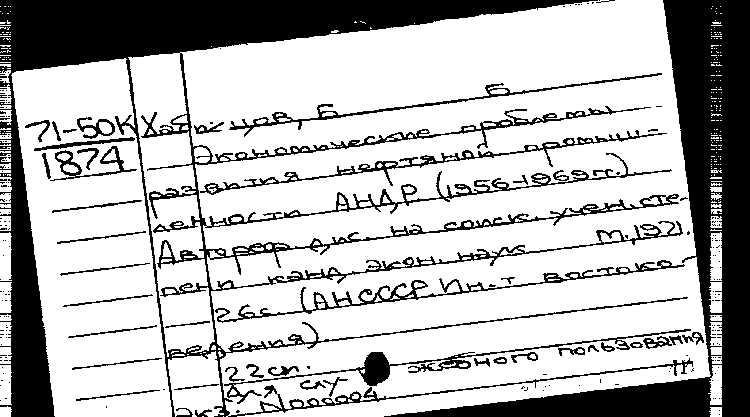 71-50К
1874
Хабицов, Б Б.
Экономические проблемы
развития нефтяной промыш-
ленности АНДР (1956-1969гг.).
Автореф дис. на соиск. учен. сте-
пени канд. экон. наук М., 1971.
26с. (АН СССР. Ин-т востоко-
ведения).
22сп.
Для слу жебного пользования
экз. N000004.